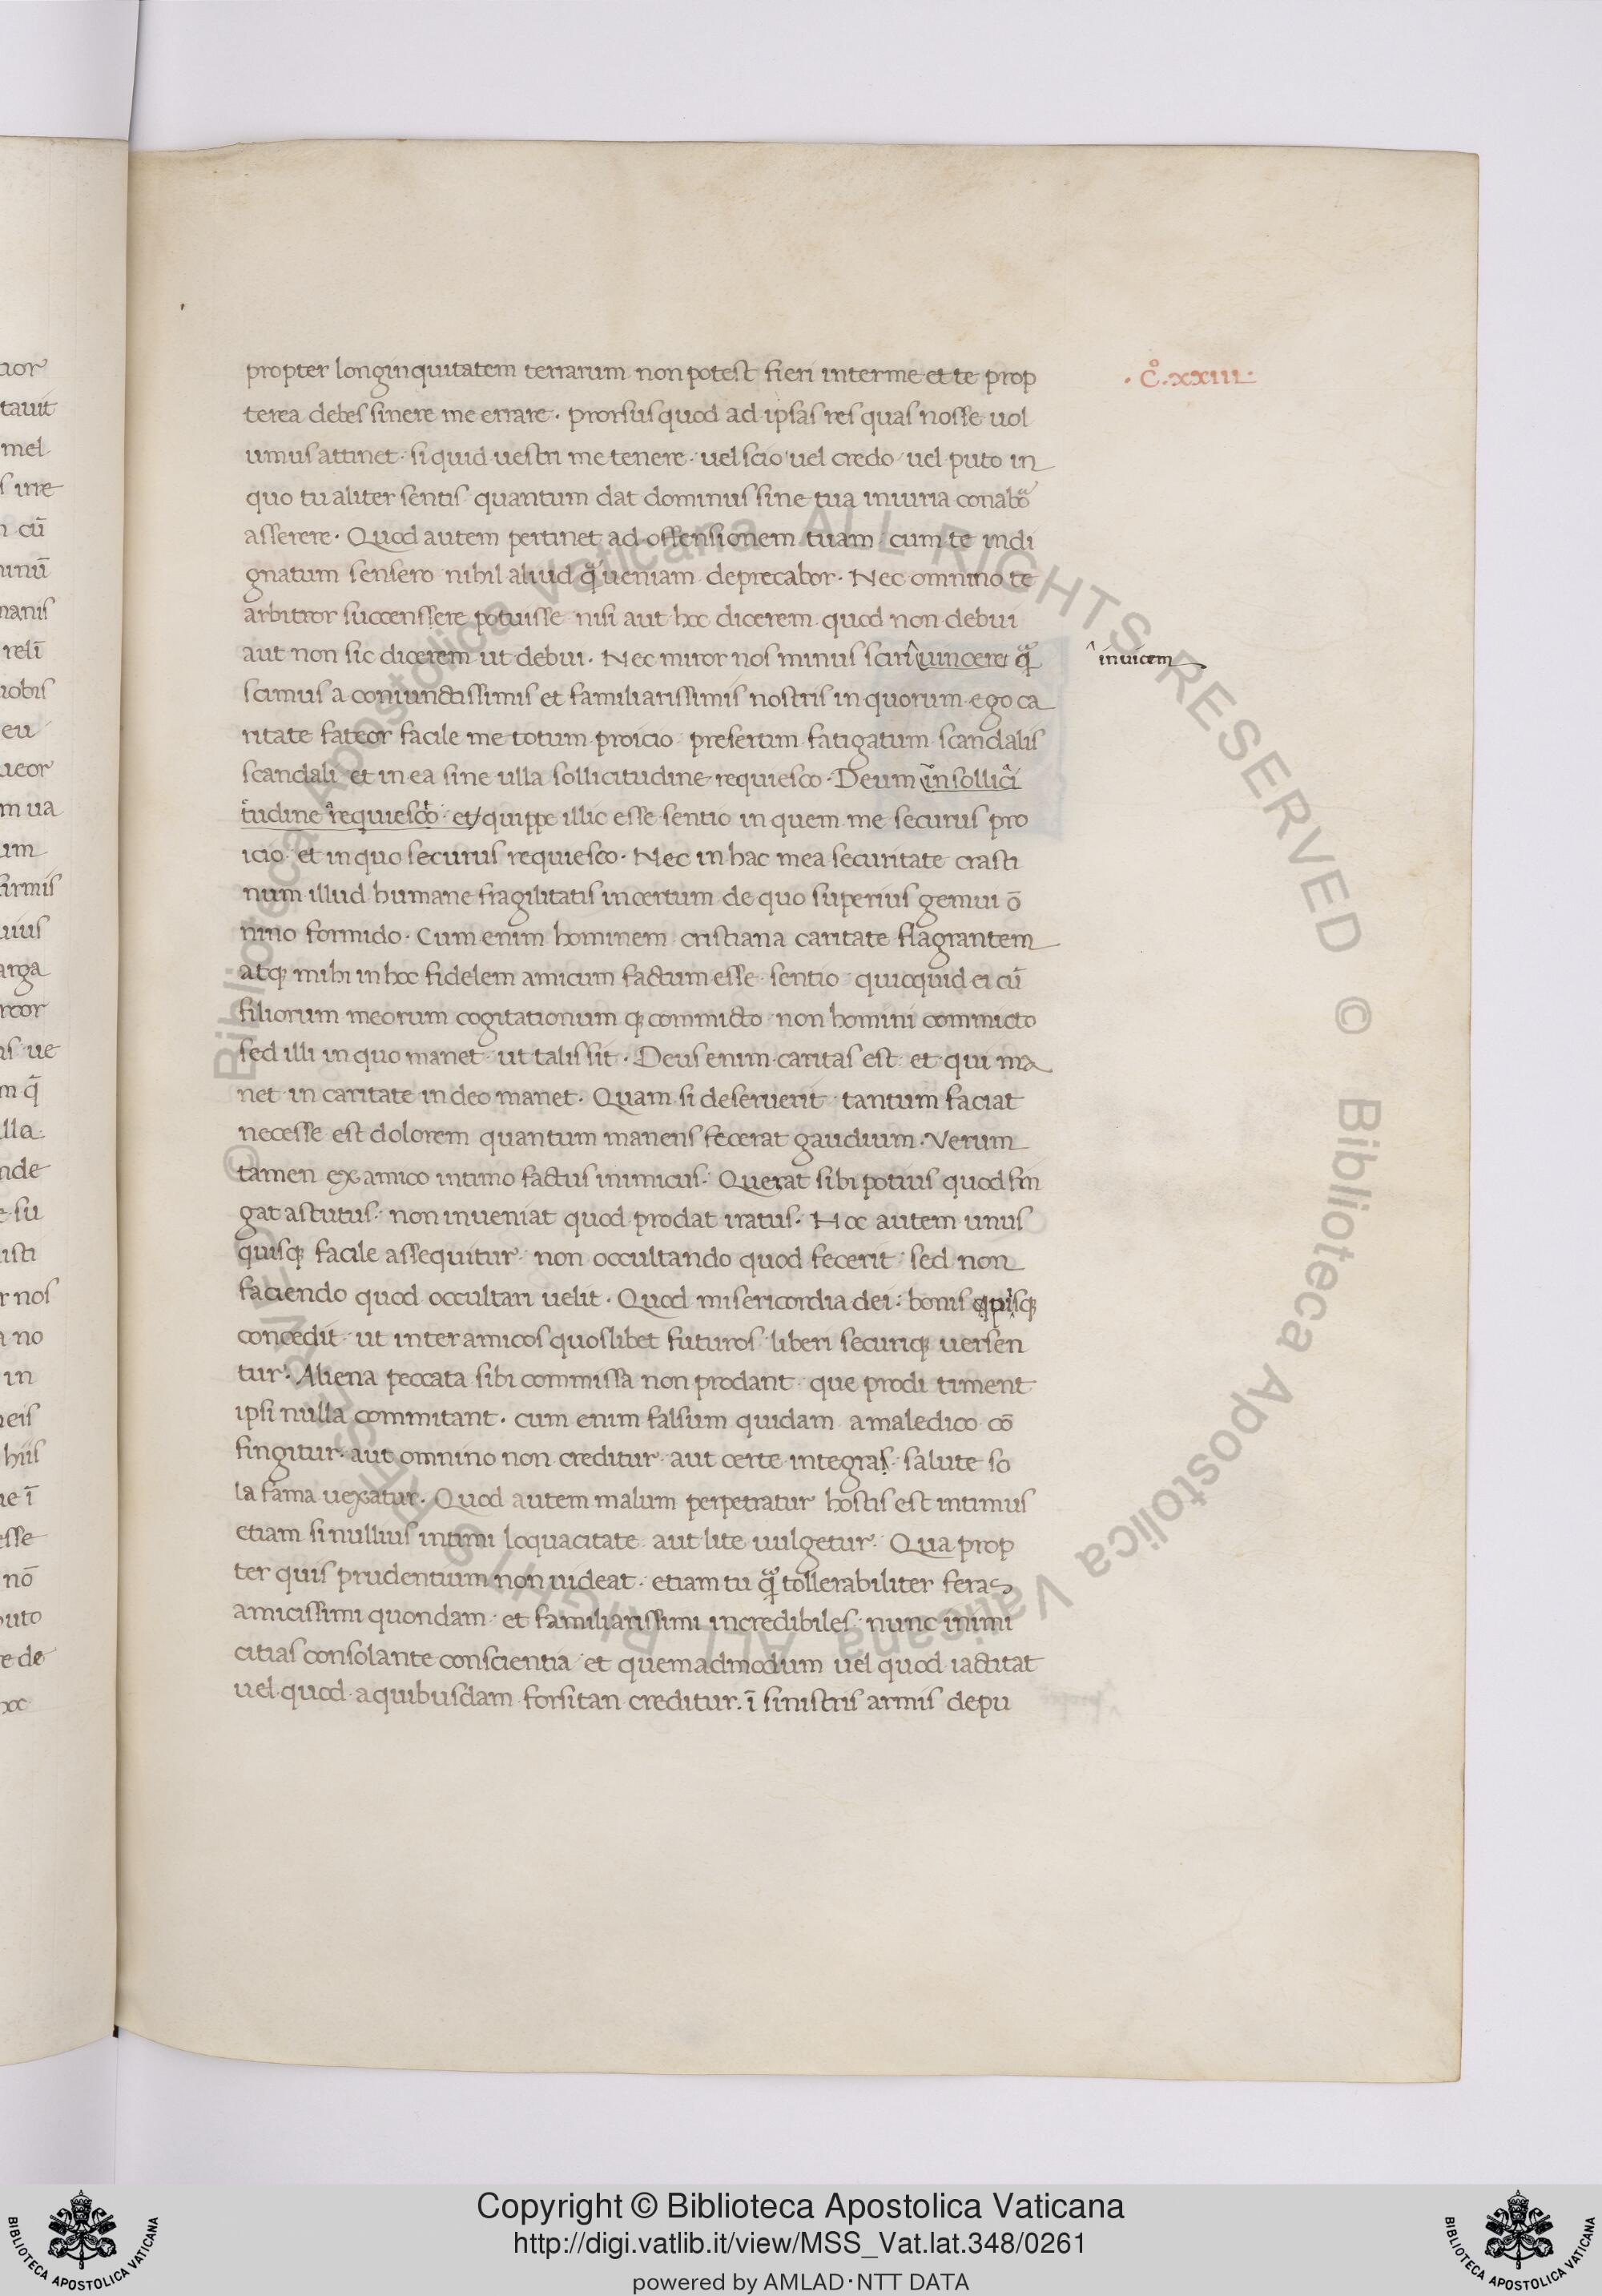 propter longinquitatem terrarum non potest fieri inter me et te prop
terea debes sinere me errare. Prorsus quod ad ipsas res quas nosse uol
umus attinet. si quid uestri me tenere. uel scio uel credo uel puto in
quo tu aliter sentis quantum dat dominus sine tua iniuria conabor
asserere. Quod autem pertinet ad offensionem tuam cum te indi
gnatum sensero nihil aliud q̃ ueniam deprecabor. Nec omnino te
arbitror succenssere potuisse nisi aut hoc dicerem quod non debui
aut non sic dicerem ut debui. Nec miror nos minus sciri uincere q̃
scimus a coniunctissimis et familiarissimis nostris in quorum ego ca
ritate fateor facile me totum proicio presertim fatigatum scandalis
scandali et in ea sine ulla sollicitudine requiesco. Deum in sollici
tudine requiesco et quippe illic esse sentio in quem me securus pro
icio et in quo securus requiesco. Nec in hac mea securitate crasti
num illud humane fragilitatis incertum de quo superius gemui õ
nino formido. Cum enim hominem cristiana caritate flagrantem
atq; mihi in hoc fidelem amicum factum esse sentio quicquid ei cũ
filiorum meorum cogitationum q; commicto non homini commicto
sed illi in quo manet ut talis sit. Deus enim caritas est et qui ma
net in caritate in deo manet. Quam si deseruerit tantum faciat
necesse est dolorem quantum manens fecerat gaudium. Verum
tamen ex amico intimo factus inimicus. Querat sibi potius quod fin
gat astutus. non inueniat quod prodat iratus. Hoc autem unus
quisq; facile assequitur non occultando quod fecerit sed non
faciendo quod occultari uelit. Quod misericordia dei bonis q; piisq;
concedit ut inter amicos quoslibet futuros liberi securiq; uersen
tur. Aliena peccata sibi commissa non prodant que prodi timent
ipsi nulla commitant. cum enim falsum quidam a maledico cõ
fingitur. aut omnino non creditur aut certe integra salute so
la fama uexatur. Quod autem malum perpetratur hostis est intimus
etiam si nullius intimi loquacitate aut lite uulgetur. Qua prop
ter quis prudentium non uideat etiam tu q̃ tollerabiliter feras
amicissimi quondam et familiarissimi incredibiles nunc inimi
citias consolante conscientia et quemadmodum uel quod iactitat
uel quod a quibusdam forsitan creditur. ĩ sinistris armis depu
.C.̊ xxiii.
inuicem
aor
tauit
mel
s irre
cũ
inũ
nanis
reli
uobis
eu
ueor
m ua
um
firmis
uius
arga
rtor
is ue
m q̃
lla
nde
e su
isti
r nos
a no
in
eis
hiis
ue ĩ
esse
nõ
puto
e de
© Biblioteca Apostolica Vaticana ALL RIGHTS RESERVED © Biblioteca Apostolica Vaticana ALL RIGHTS RESERVED
Copyright © Biblioteca Apostolica Vaticana
http://digi.vatlib.it/view/MSS_Vat.lat.348/0261
powered by AMLAD·NTT DATA
BIBLIOTECA APOSTOLICA VATICANA
BIBLIOTECA APOSTOLICA VATICANA